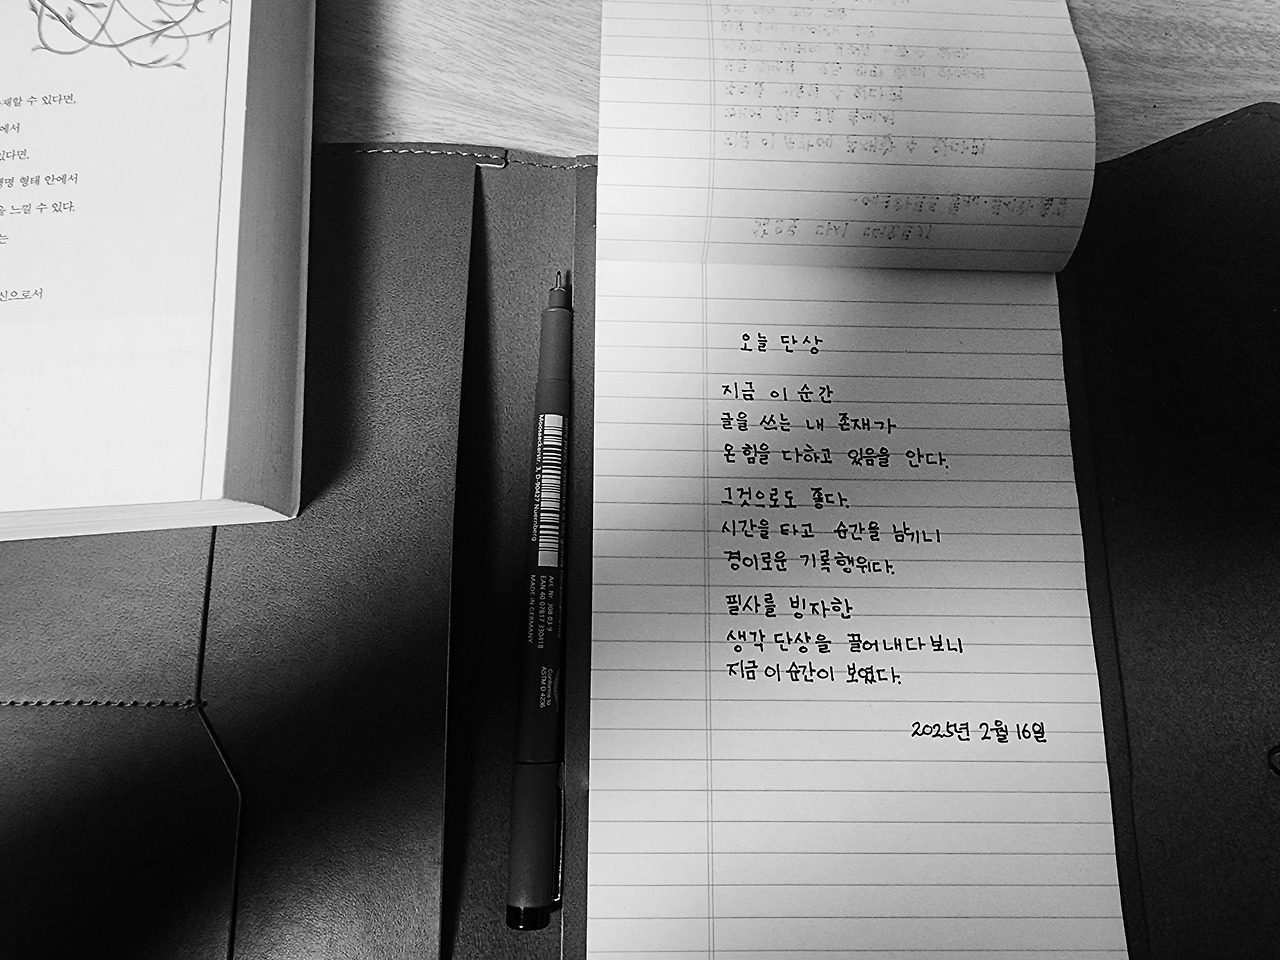 재할 수 있다면,
에서
있다면.
생명 형태 안에서
을 느낄 수 있다.
는
신으로서
Moosaeckerstr. 3, D-90427 Nuernberg
Art. Nr. 308 03-9
EAN 40 07817 330418
MADE IN GERMANY
Conforms to
ASTM D 4236
오늘 단상
지금 이 순간
글을 쓰는 내 존재가
온 힘을 다하고 있음을 안다.
그것으로도 좋다.
시간을 타고 순간을 남기니
경이로운 기록행위다.
필사를 빙자한
생각 단상을 끌어내다보니
지금 이 순간이 보였다.
2025년 2월 16일